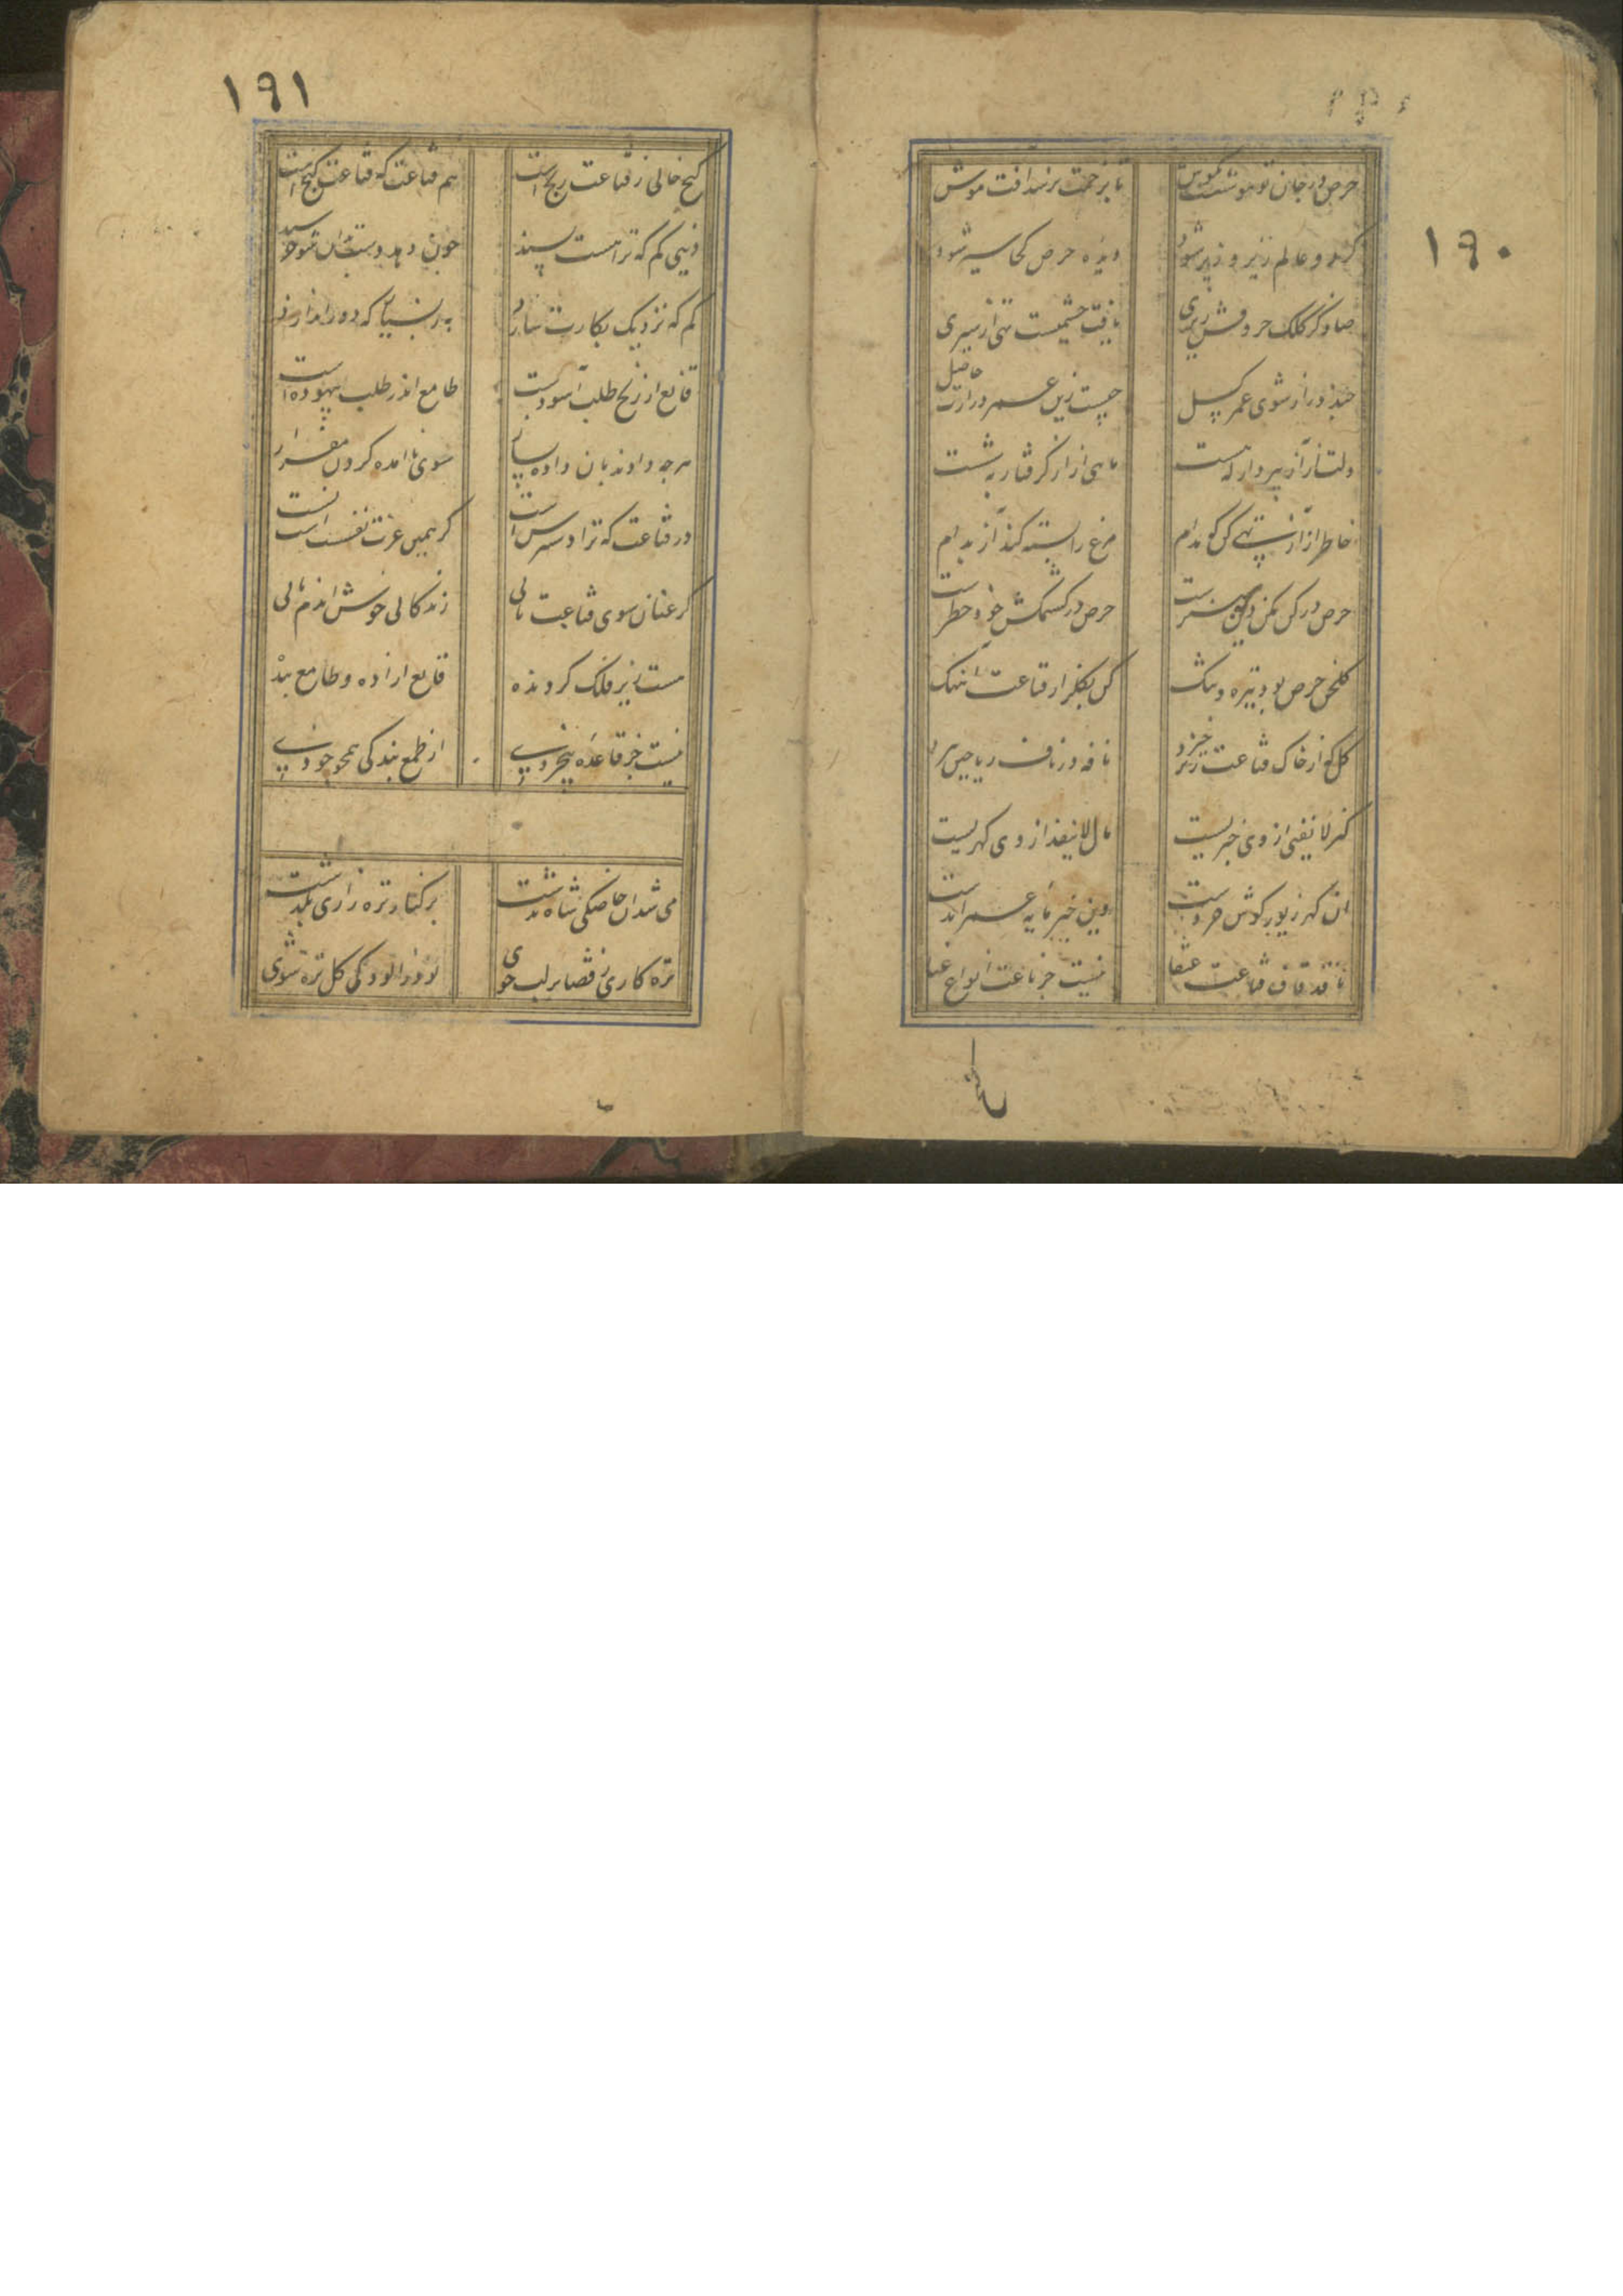 ۱۹۰
حرص در جان تو موشیست بکوش
تا برختت نرسد آفت موش
کر دو عالم زبر و زیر شود
دیده حرص کجا سیر شود
صاد کز کلک حروفش زیری
یافت چشمیست تهی از سیری
چند در آز شوی عمر کسل
چیست زین عمر درازت حاصل
دلت از آز بپرداز که هست
ماهی از آز کرفتار بشست
خاطر از آز تهی کن که مدام
مرغ را بسته کند آز بدام
حرص در کن مکن
حرص در کشمکش خوف و خطرست
کلخن حرص بود تیره و تنک
کن بکلزار قناعت آهنک
کل که از خاک قناعت خیزد
نافه در ناف ریاحین ریزد
کنز لا یفنی از وی خبریست
مال لا ینفد از وی کهریست
آن کهر زیور کوش خردست
وین خبر مایه عمر ابدست
تا قد قاف قناعت عنقا
نیست جز باعث انواع عنا
کنج
۱۹۱
کنج خالی ز قناعت رنج است
هم قناعت که قناعت کنج است
دنیی کم که ترا هست پسند
چون دهد دست بدان شو خرسند
کم که نزدیک بکارت سازد
به ز بسیار که دور اندازد
قانع از رنج طلب آسوده است
طامع اندر طلب بیهوده است
هرچه دادند بان داده بساز
سوی ناآمده کردن مفراز
در قناعت که ترا دسترس است
کر همین عزت نفس است بس است
کر عنان سوی قناعت تابی
زندکانی خوش اندم یابی
هست زیر فلک کردنده
قانع آزاده و طامع بنده
نیست جز قاعده بیخردی
از طمع بندکی همچو خودی
می شد آن خاصکی شاه بدشت
بر کنار تره زاری بکذشت
تره کاری ز قضا بر لب جوی
بود ز آلودکی کل تره شوی